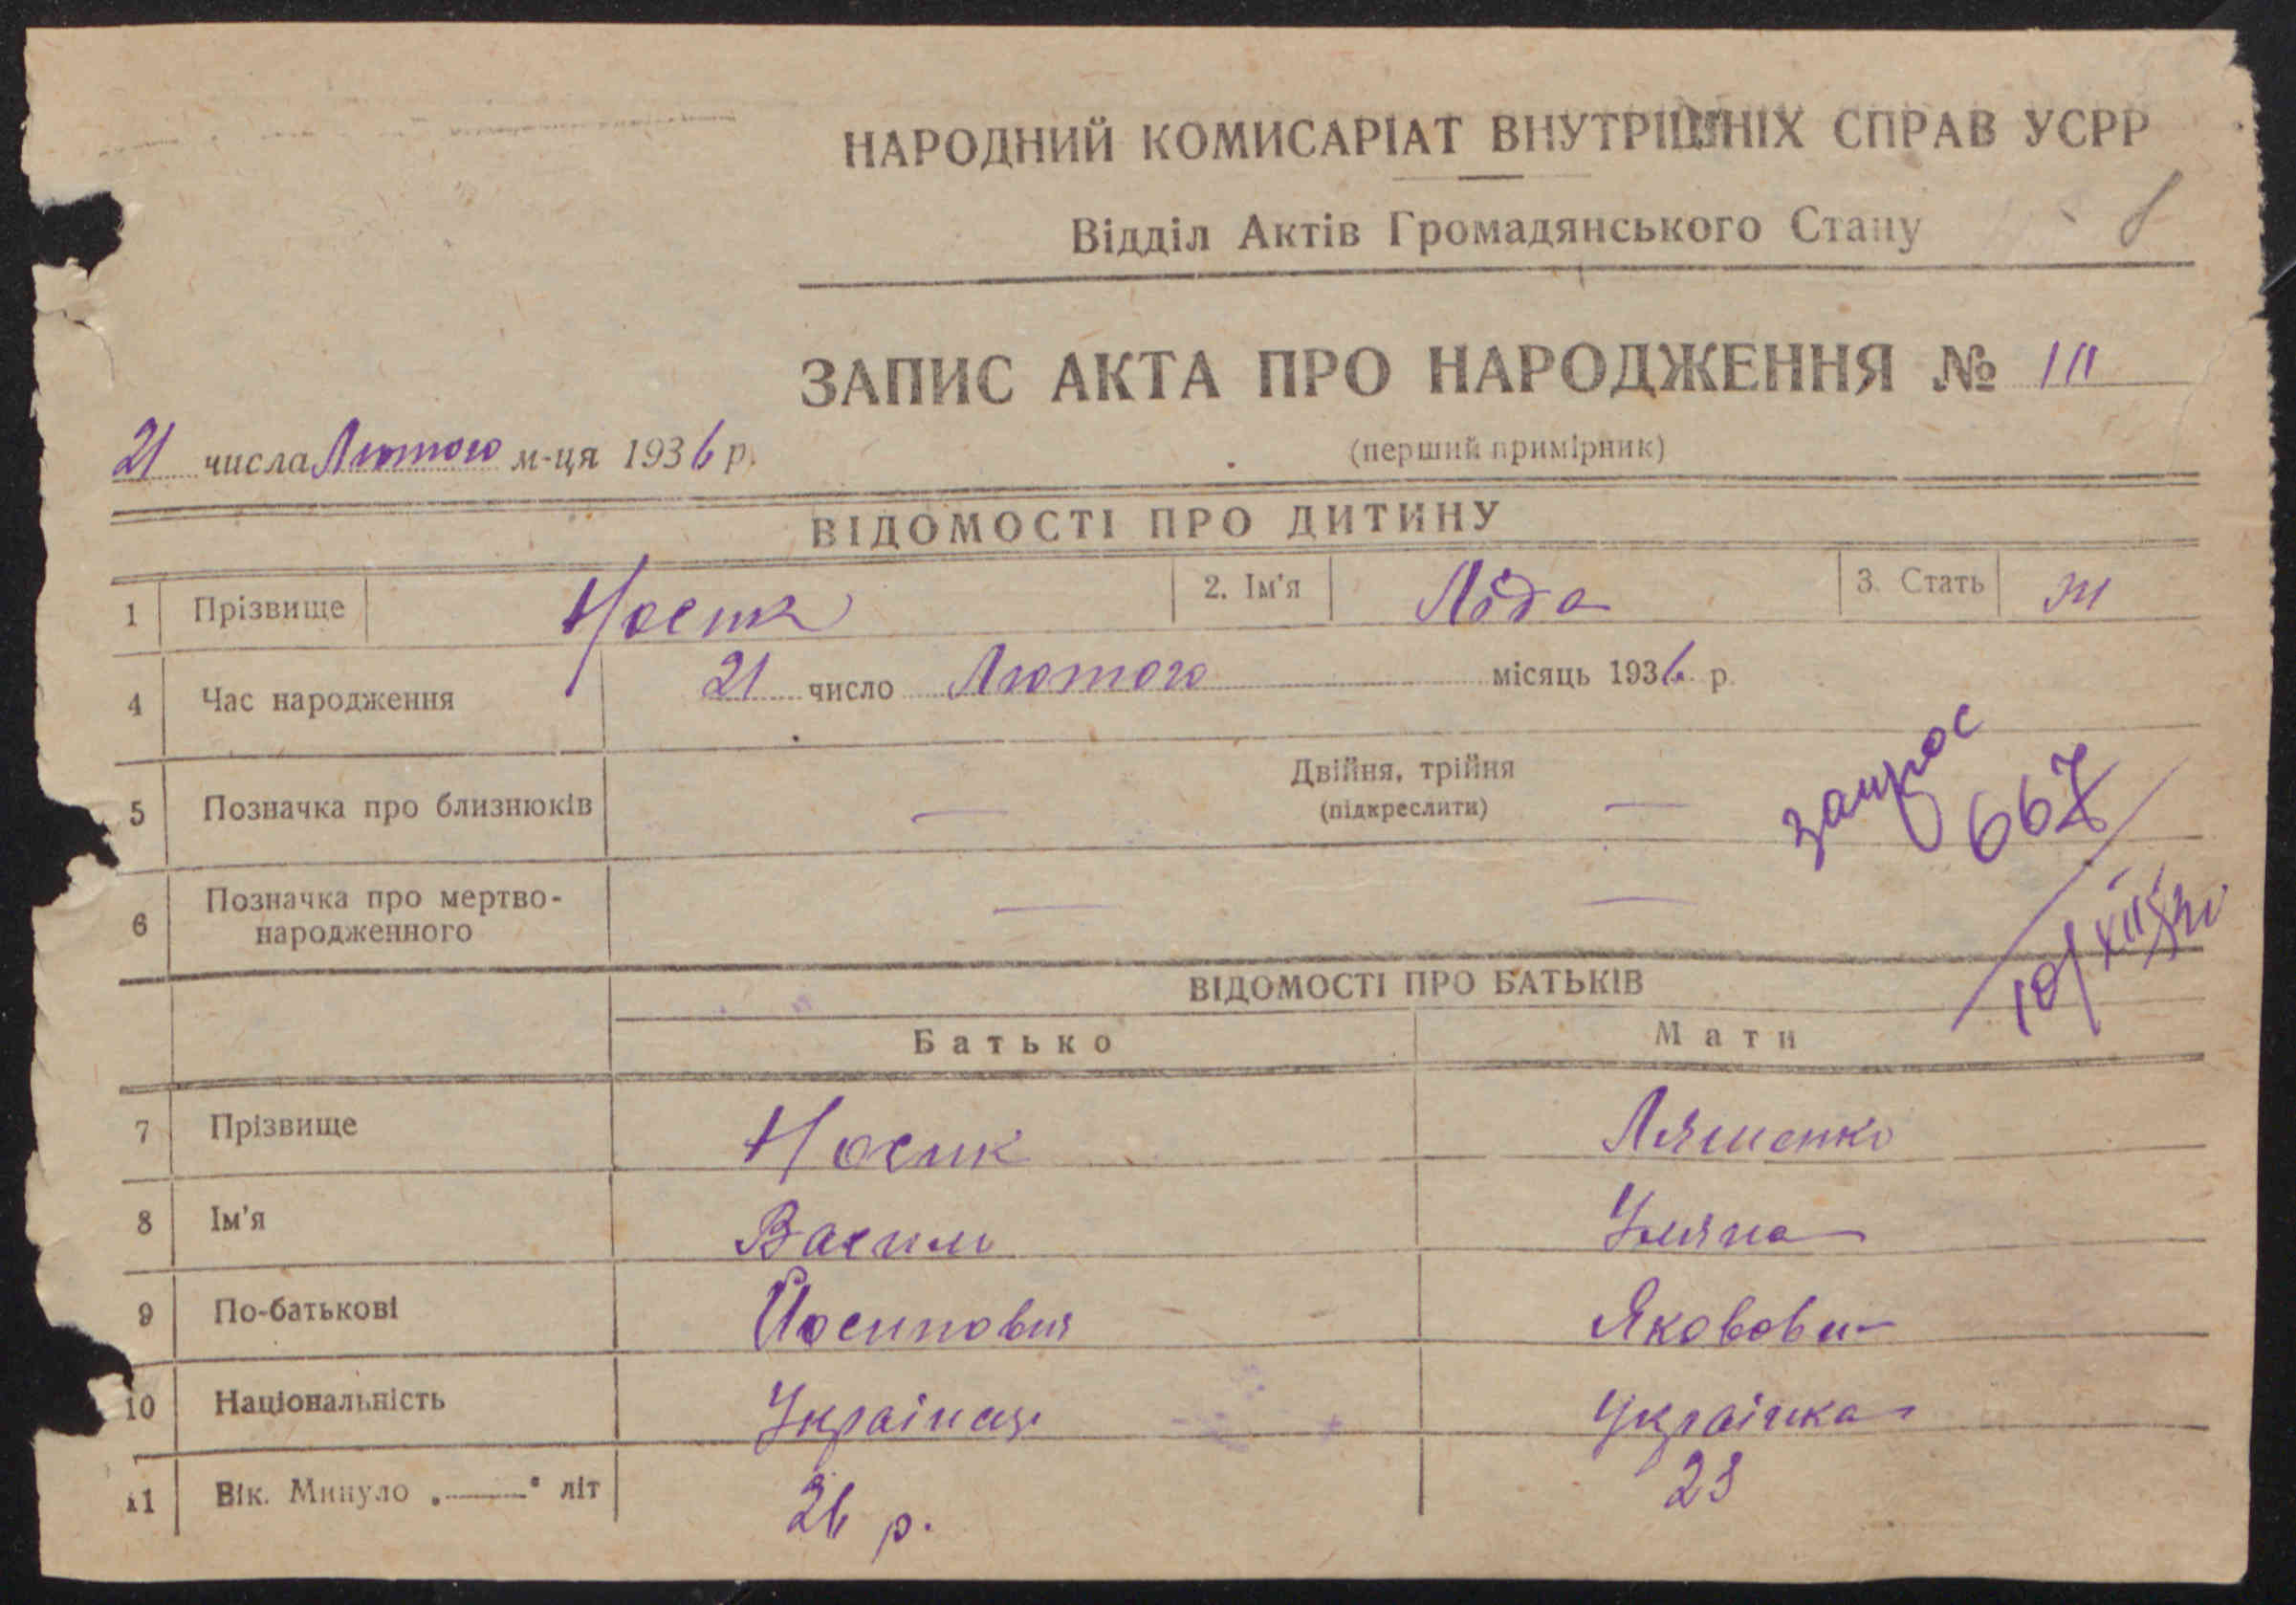 НАРОДНИЙ КОМИСАРІАТ ВНУТРІШНІХ СПРАВ УСРР
Відділ Актів Громадянського Стану
ЗАПИС АКТА ПРО НАРОДЖЕННЯ №
21 числа Лютого м-ця 1936 р.
(перший примірник)
ВІДОМОСТІ ПРО ДИТИНУ
1 Прізвище Носик 2. Ім'я Ліда 3. Стать ж
4 Час народження 21 число Лютого місяць 1936 р.
5 Позначка про близнюків — Двійня, трійня —
(підкреслити)
запрос
667
6 Позначка про мертво- — —
народженного
ВІДОМОСТІ ПРО БАТЬКІВ
Батько Мати
7 Прізвище Носик Ляшенко
8 Ім'я Васил Уляна
9 По-батькові Йосипович Яковов
10 Національність Українець Українка
11 Вік. Минуло „——" літ 26 р. 23